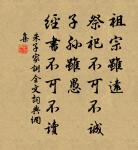 祖宗雖遠
祭祀不可不誠
子孫雖愚
經書不可不讀
朱子家訓全文詞典網
集